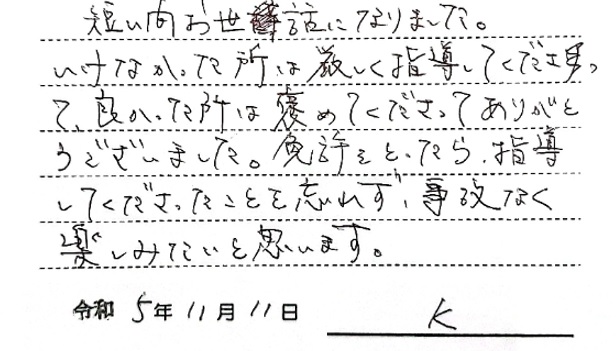 短い間お世話になりました。
いけなかった所は厳しく指導してくださっ
て、良かった所は褒めてくださってありがと
うございました。免許をとったら、指導
してくださったことを忘れず、事故なく
楽しみたいと思います。
令和 5年 11月 11日 K